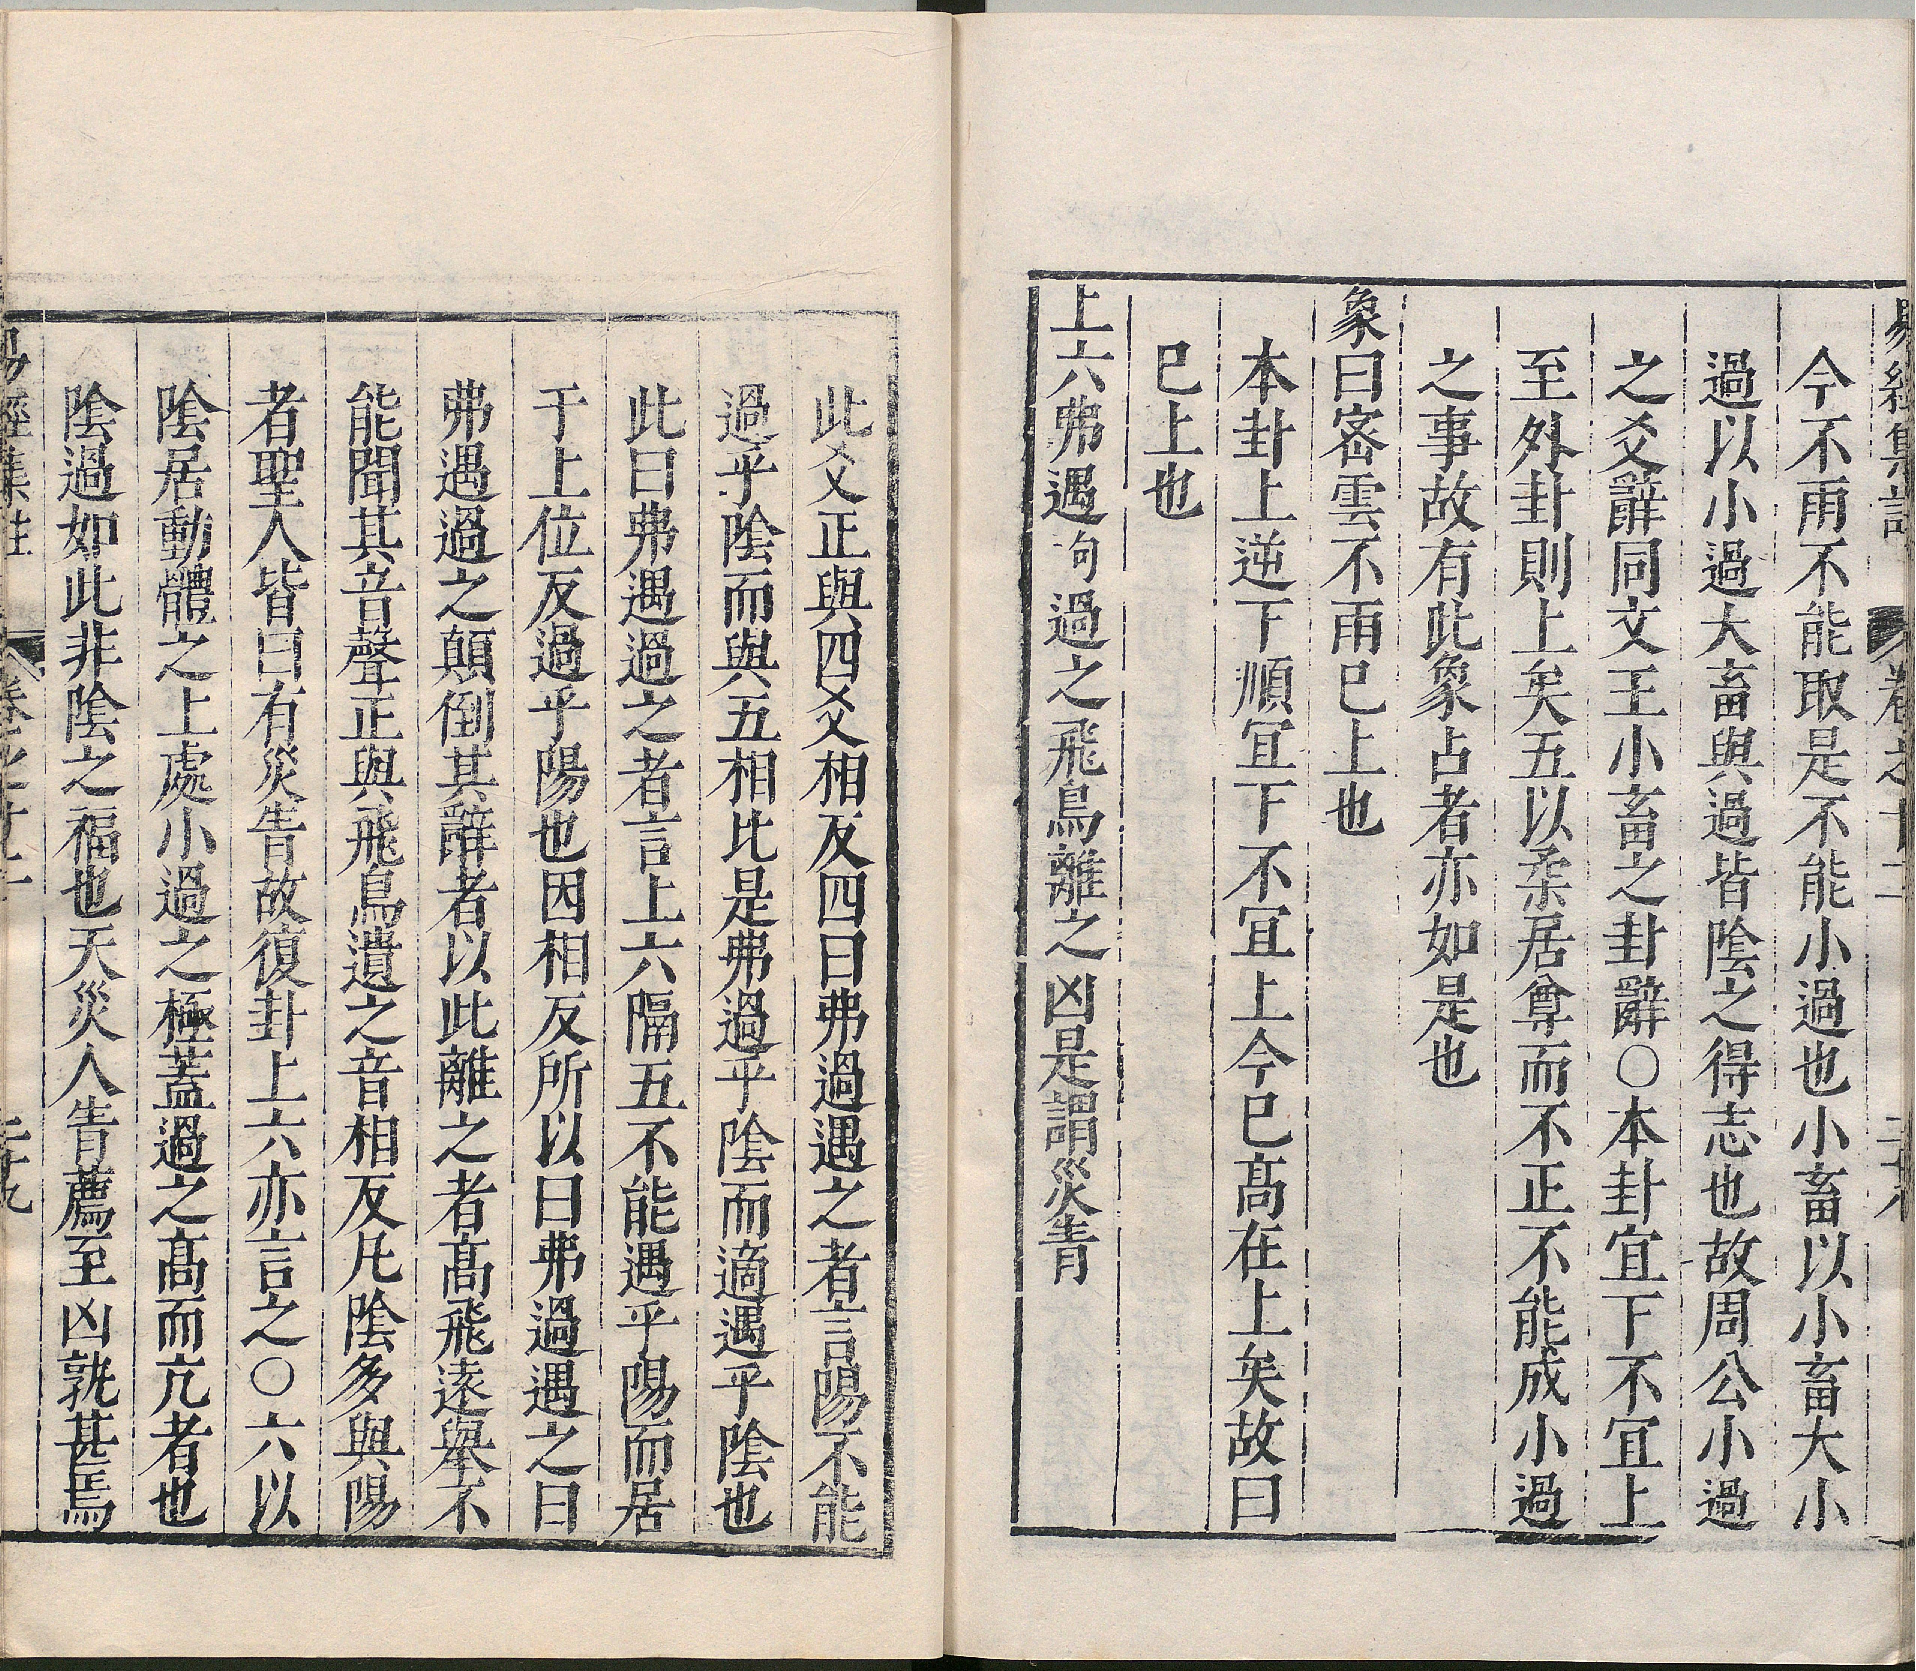 今不雨不能取是不能小過也小畜以小畜大小
過以小過大畜與過皆陰之得志也故周公小過
之爻辭同文王小畜之卦辭○本卦宜下不宜上
至外卦則上矣五以柔居尊而不正不能成小過
之事故有此象占者亦如是也
象曰密雲不雨已上也
本卦上逆下順宜下不宜上今已高在上矣故曰
已上也
上六弗遇句過之飛鳥離之凶是謂災眚
此爻正與四爻相反四曰弗過遇之者言陽不能
過乎陰而與五相比是弗過乎陰而適遇乎陰也
此曰弗遇過之者言上六隔五不能遇乎陽而居
于上位反過乎陽也因相反所以曰弗過遇之曰
弗遇過之顛倒其辭者以此離之者高飛遠舉不
能聞其音聲正與飛鳥遺之音相反凡陰多與陽
者聖人皆曰有災眚故復卦上六亦言之○六以
陰居動體之上處小過之極蓋過之高而亢者也
陰過如此非陰之福也天災人眚薦至凶孰甚焉